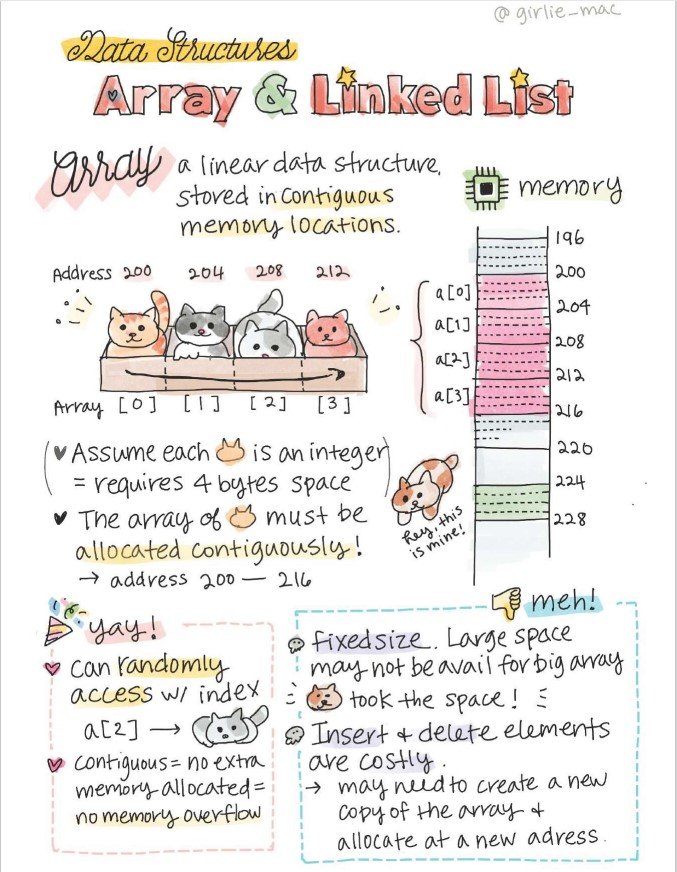 @girlie_mac
Data Structures
Array & Linked List
array a linear data structure,
stored in contiguous
memory locations.
memory
196
200
204
208
212
216
220
224
228
a[0]
a[1]
a[2]
a[3]
Address 200 204 208 212
Array [0] [1] [2] [3]
(♥ Assume each is an integer)
= requires 4 bytes space
♥ The array of must be
allocated contiguously!
→ address 200 — 216
hey, this
is mine!
yay!
♥ can randomly
access w/ index
a[2] →
♥ contiguous = no extra
memory allocated =
no memory overflow
meh!
fixed size. Large space
may not be avail for big array
took the space!
Insert & delete elements
are costly.
→ may need to create a new
copy of the array &
allocate at a new adress.